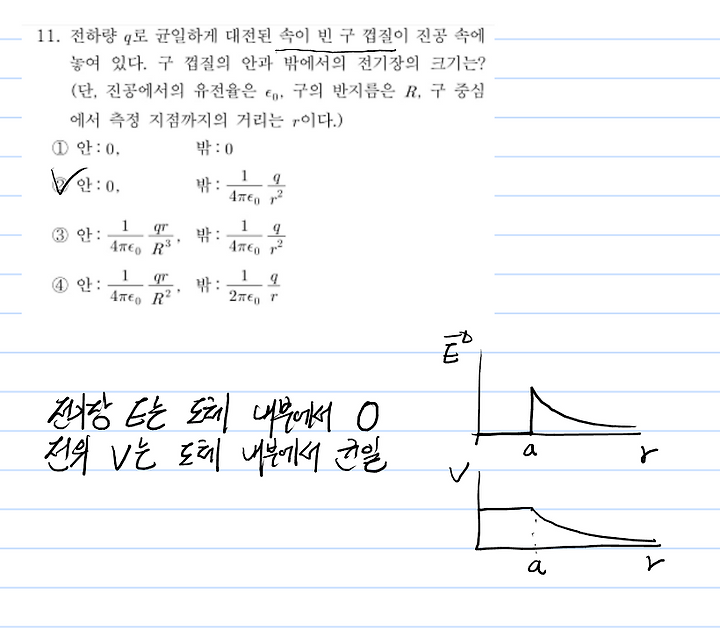 11. 전하량 q로 균일하게 대전된 속이 빈 구 껍질이 진공 속에
놓여 있다. 구 껍질의 안과 밖에서의 전기장의 크기는?
(단, 진공에서의 유전율은 ϵ₀, 구의 반지름은 R, 구 중심
에서 측정 지점까지의 거리는 r이다.)
① 안 : 0, 밖 : 0
② 안 : 0, 밖 : 1/4πϵ₀ q/r²
③ 안 : 1/4πϵ₀ qr/R³, 밖 : 1/4πϵ₀ q/r²
④ 안 : 1/4πϵ₀ qr/R², 밖 : 1/2πϵ₀ q/r
E
전기장 E는 도체 내부에서 0
a r
전위 V는 도체 내부에서 균일
V
a r